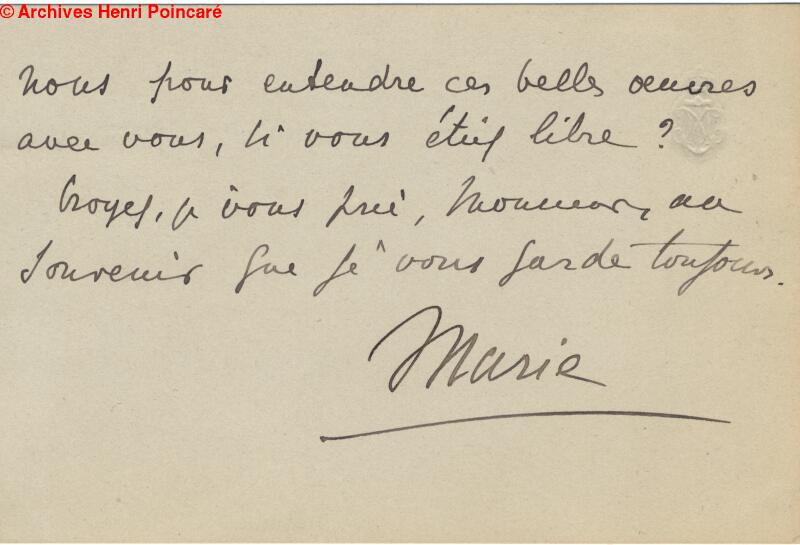 © Archives Henri Poincaré
nous pour entendre ces belles œuvres
avec vous, si vous étiez libre ?
Croyez, je vous prie, Monsieur, au
souvenir que je vous garde toujours.
Marie